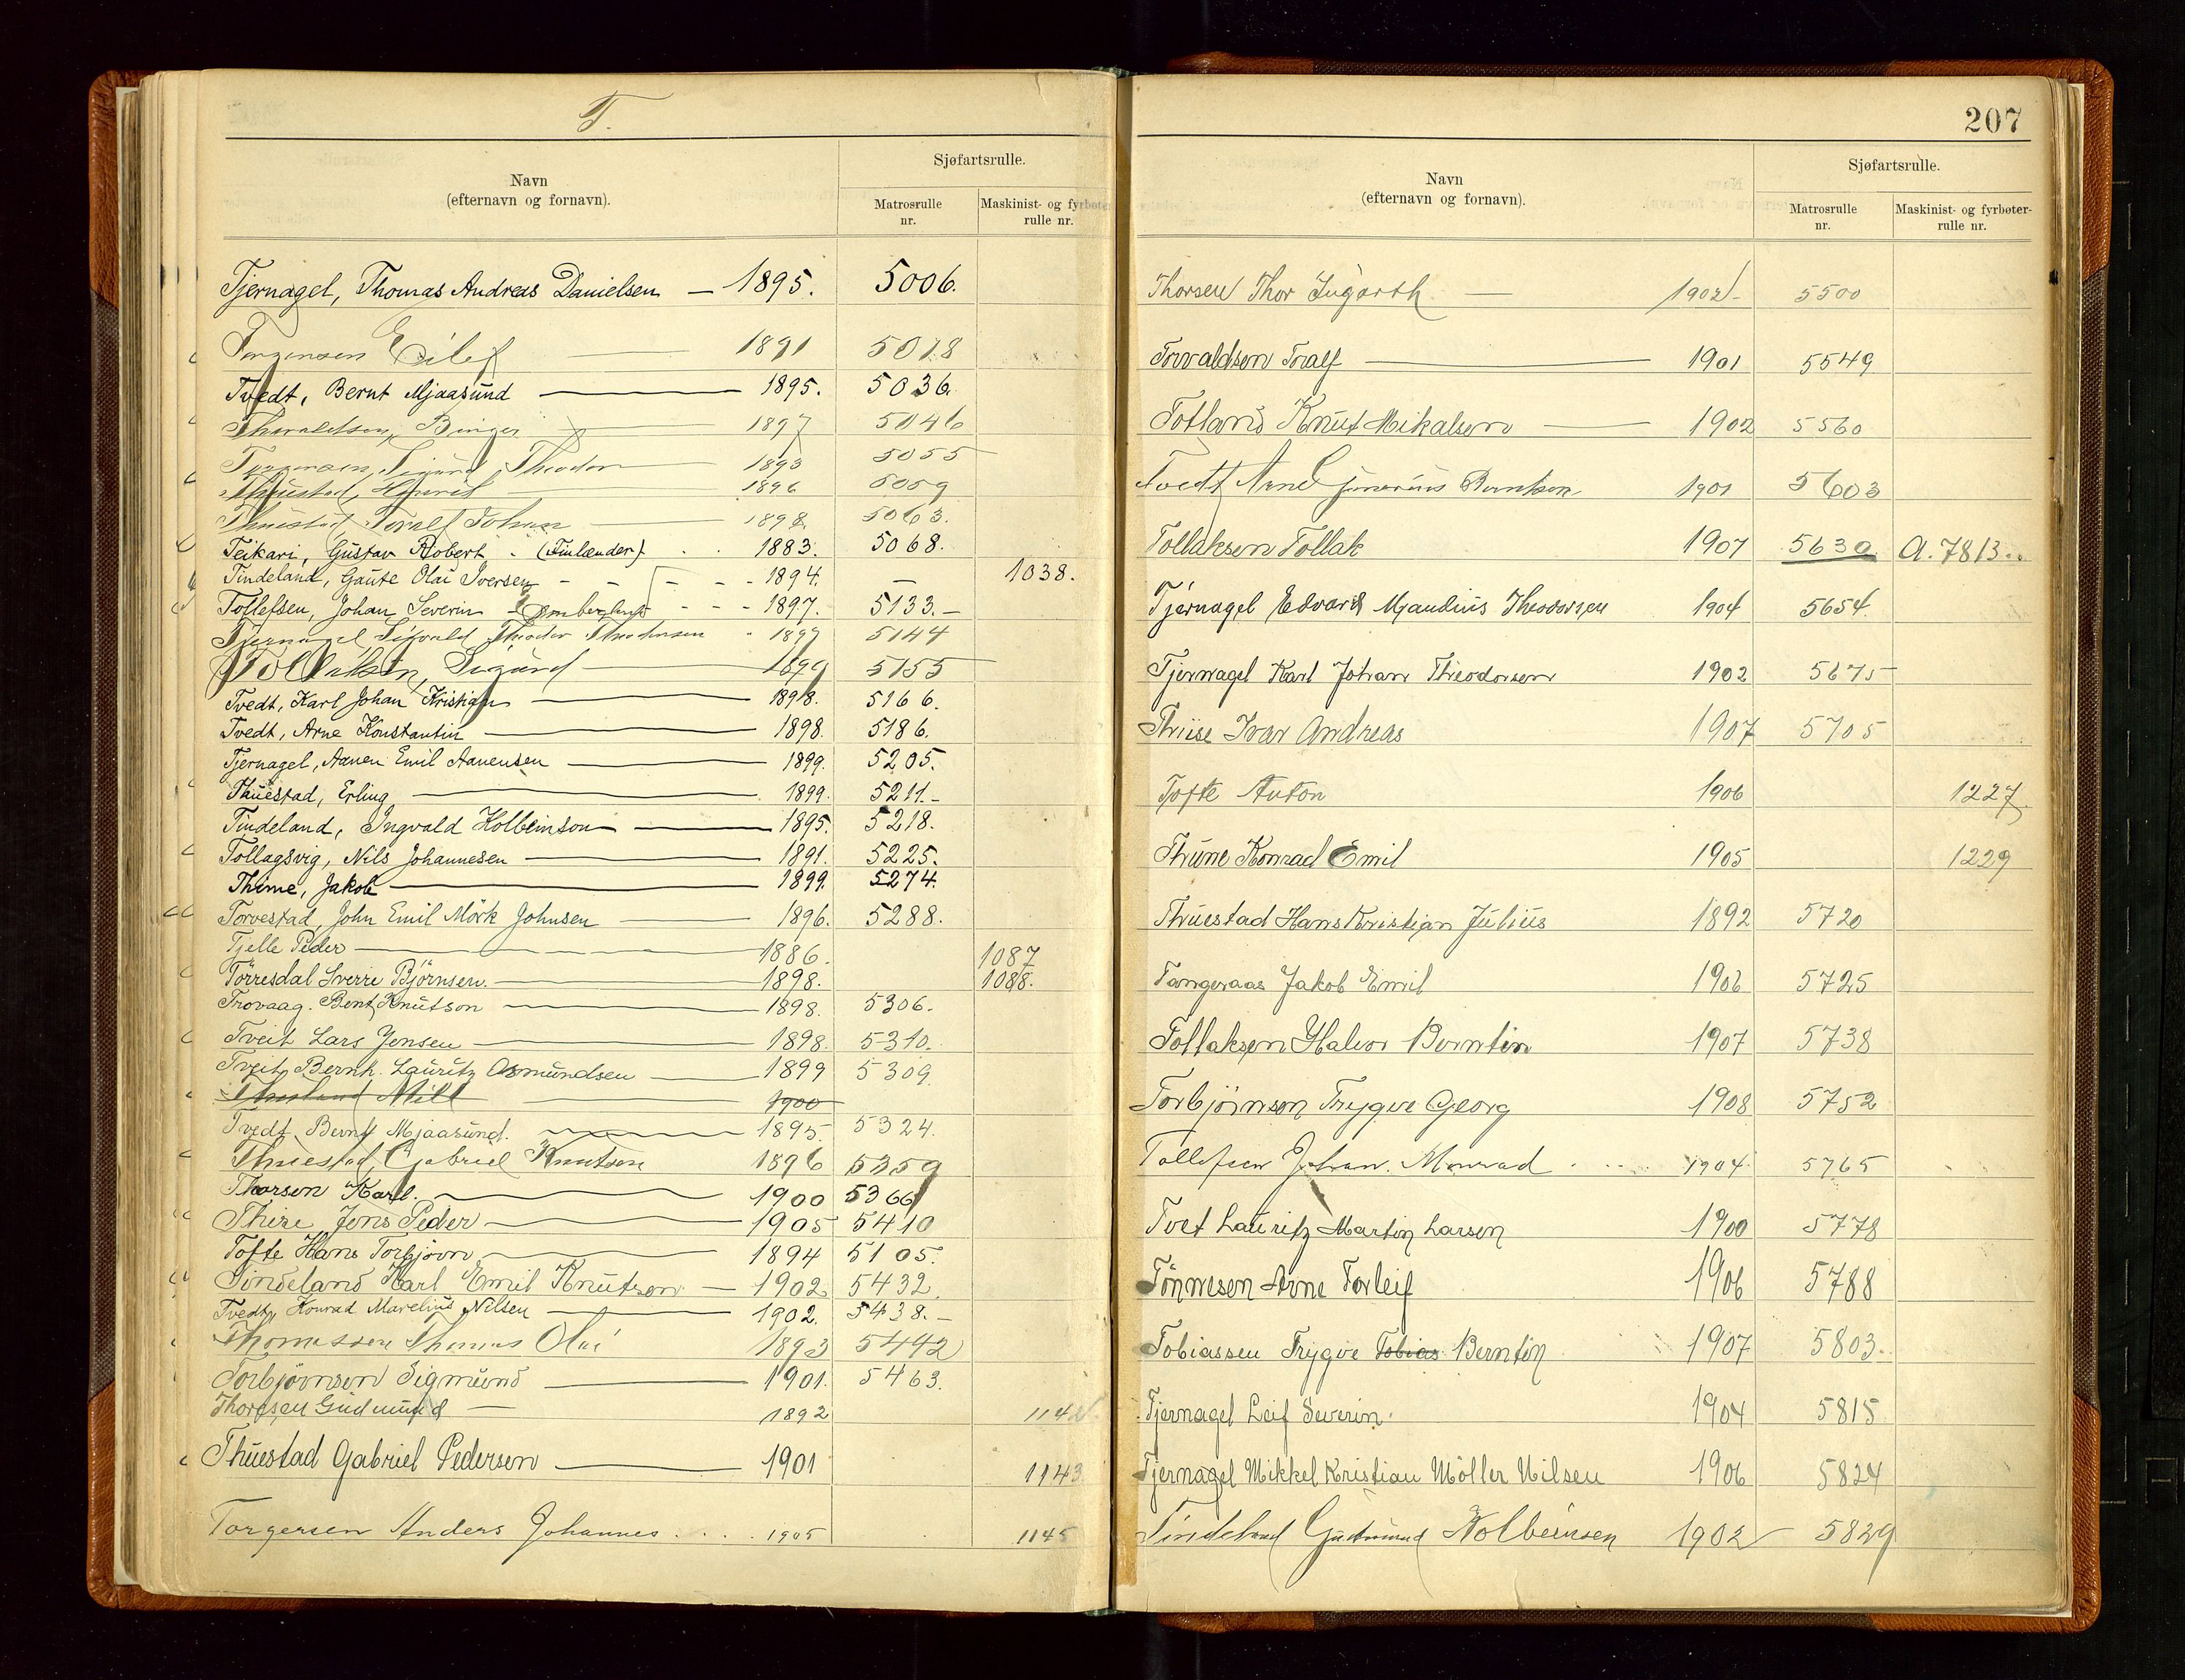 T.
Navn
(efternavn og fornavn).
Sjøfartsrulle.
Matrosrulle
nr.
Maskinist- og fyrbøter-
rulle nr.
Tjernagel, Thomas Andreas Danielsen — 1895. 5006.
Torgersen Eilef 1891 5018
Tvedt, Bernt Mjaasund — 1895. 5036.
Thoraldsen, Birger 1897 5046
Sigurd Theodor 1893 5055
Thuestad, Henrik 1896 5059
Thuestad Toralf Johan 1898. 5063.
Teikari, Gustav Robert. (Finlænder) 1883. 5068.
Tindeland, Gaute Olai Iversen - - - - 1894. — 1038.
Tollefsen, Johan Severin - - - 1897. 5133.-
Tjernagel Sigvald Theodor Theodorsen 1897 5144
Tollaksen, Sigurd — 1899 5155
Tvedt, Karl Johan Kristian — 1898. 5166.
Tvedt, Arne Konstantin — 1898. 5186.
Tjernagel, Aanen Emil Aanensen — 1899. 5205.
Thuestad, Erling — 1899. 5211.-
Tindeland, Ingvald Kolbeinson — 1895. 5218.
Tollagsvig, Nils Johannesen — 1891. 5225.
Thime, Jakob — 1899. 5274.
Torvestad, John Emil Mörk Johnsen — 1896. 5288.
Tjelle Peder — 1886. 1087
Törresdal Sverre Björnsen. — 1898. 1088.
Trovaag. Bent Knutson — 1898. 5306.
Tveit Lars Jensen — 1898. 5310.
Tveit Bernh. Lauritz Asmundsen — 1899 5309.
1900
Tvedt Bernt Mjaasund. — 1895. 5324.
Thuestad, Gabriel Knutsen 1896 5359
Thorsen Karl. — 1900 5366
Jens Peder — 1905 5410
Tofte Hans Torbjörn — 1894 5105.
Tindeland Karl Emil Knutson — 1902 5432.
Tvedt, Konrad Marelius Nilsen — 1902. 5438.-
Thomassen Thomas Olai 1893 5442
Torbjörnsen Sigmund — 1901. 5463.
Thorsen Gudmund — 1892
Thuestad Gabriel Pedersen — 1901 1143
Torgersen Anders Johannes . . . . 1905 1145
207
Navn
(efternavn og fornavn).
Sjøfartsrulle.
Matrosrulle
nr.
Maskinist- og fyrbøter-
rulle nr.
Thorsen Thor — 1902 5500
Torvaldsen Toralf — 1901 5549
Totland Knut Mikalsen — 1902 5560
Tvedt Arne Berntsen 1901 5603
Tollaksen Tollak 1907 5630 A. 7813..
Tjernagel Edvard Mjandius Theodorsen 1904 5654.
Tjernagel Karl Johan Theodorsen 1902 5675
Ivar Andreas 1907 5705
Tofte Anton 1906 1227
Thune Konrad Emil 1905 1229
Thuestad Hans Kristian Julius 1892 5720
Tangeraas Jakob Emil 1906 5725
Tollaksen Halvor Berntin 1907 5738
Torbjörnson Trygve Georg 1908 5752
Tollefsen Johan. Monrad . . . . 1904. 5765
Tvet Lauritz Martin Larsen 1900 5778
Tönnesen Arne Torleif 1906 5788
Tobiassen Trygve Tobias Berntin 1907 5803.
Tjernagel Leif Severin. 1904 5815
Tjernagel Mikkel Kristian Möller Nilsen 1906 5824
Tindeland Gudmund Kolbeinsen 1902 5829